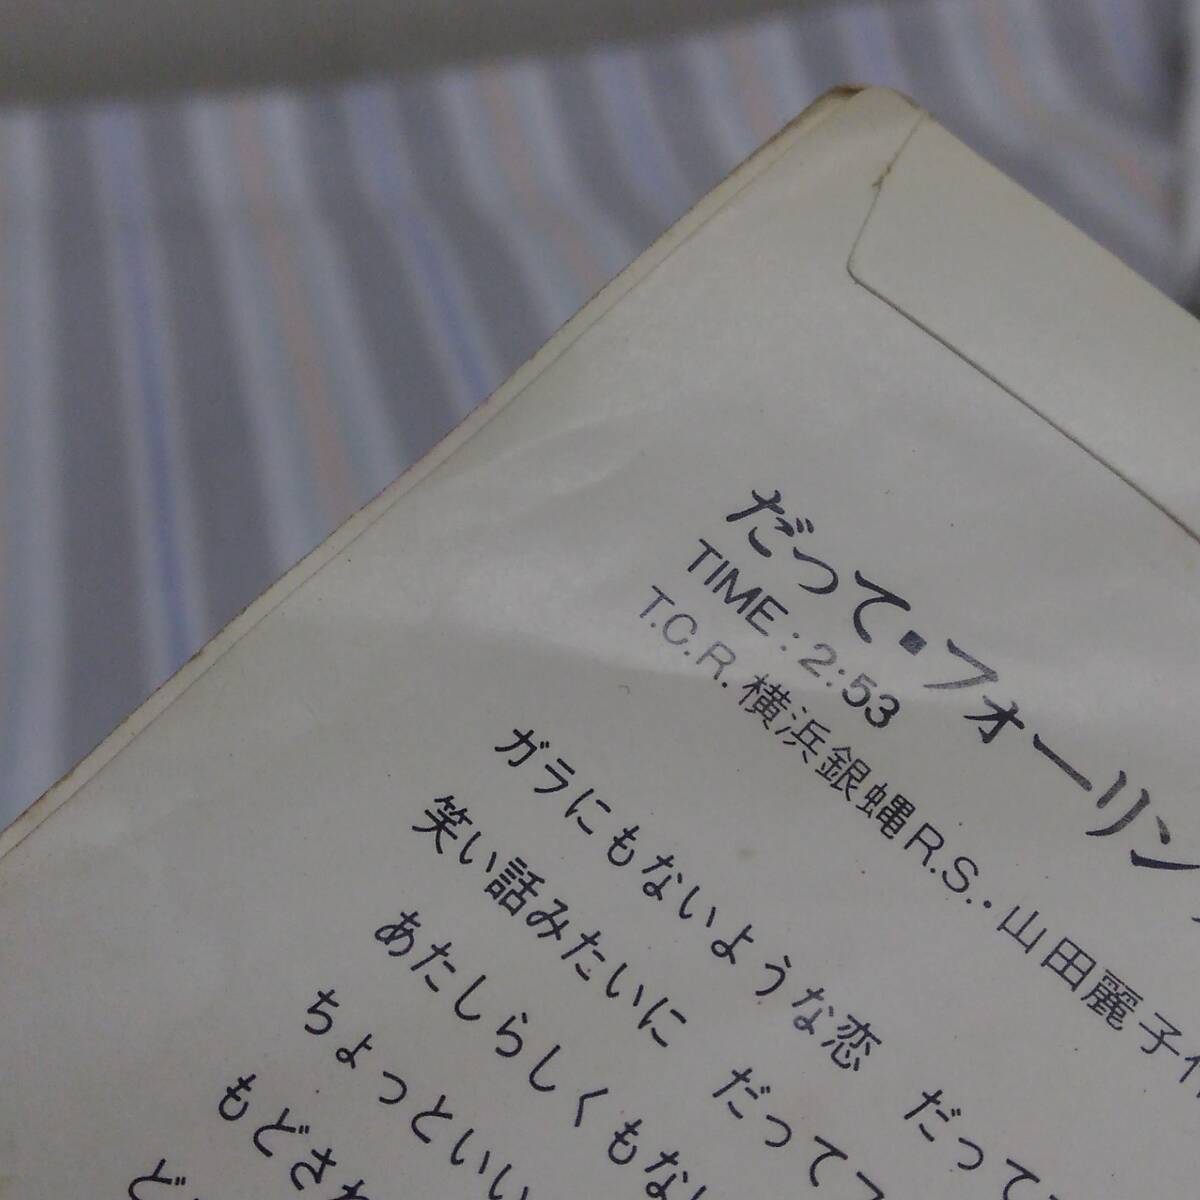 だって・フォーリン
TIME：2:53
T.C.R.横浜銀蝿R.S.・山田麗子作
ガラにもないような恋　だって
笑い話みたいに　だってフ
あたしらしくもな
ちょっといい
もどさ
ど